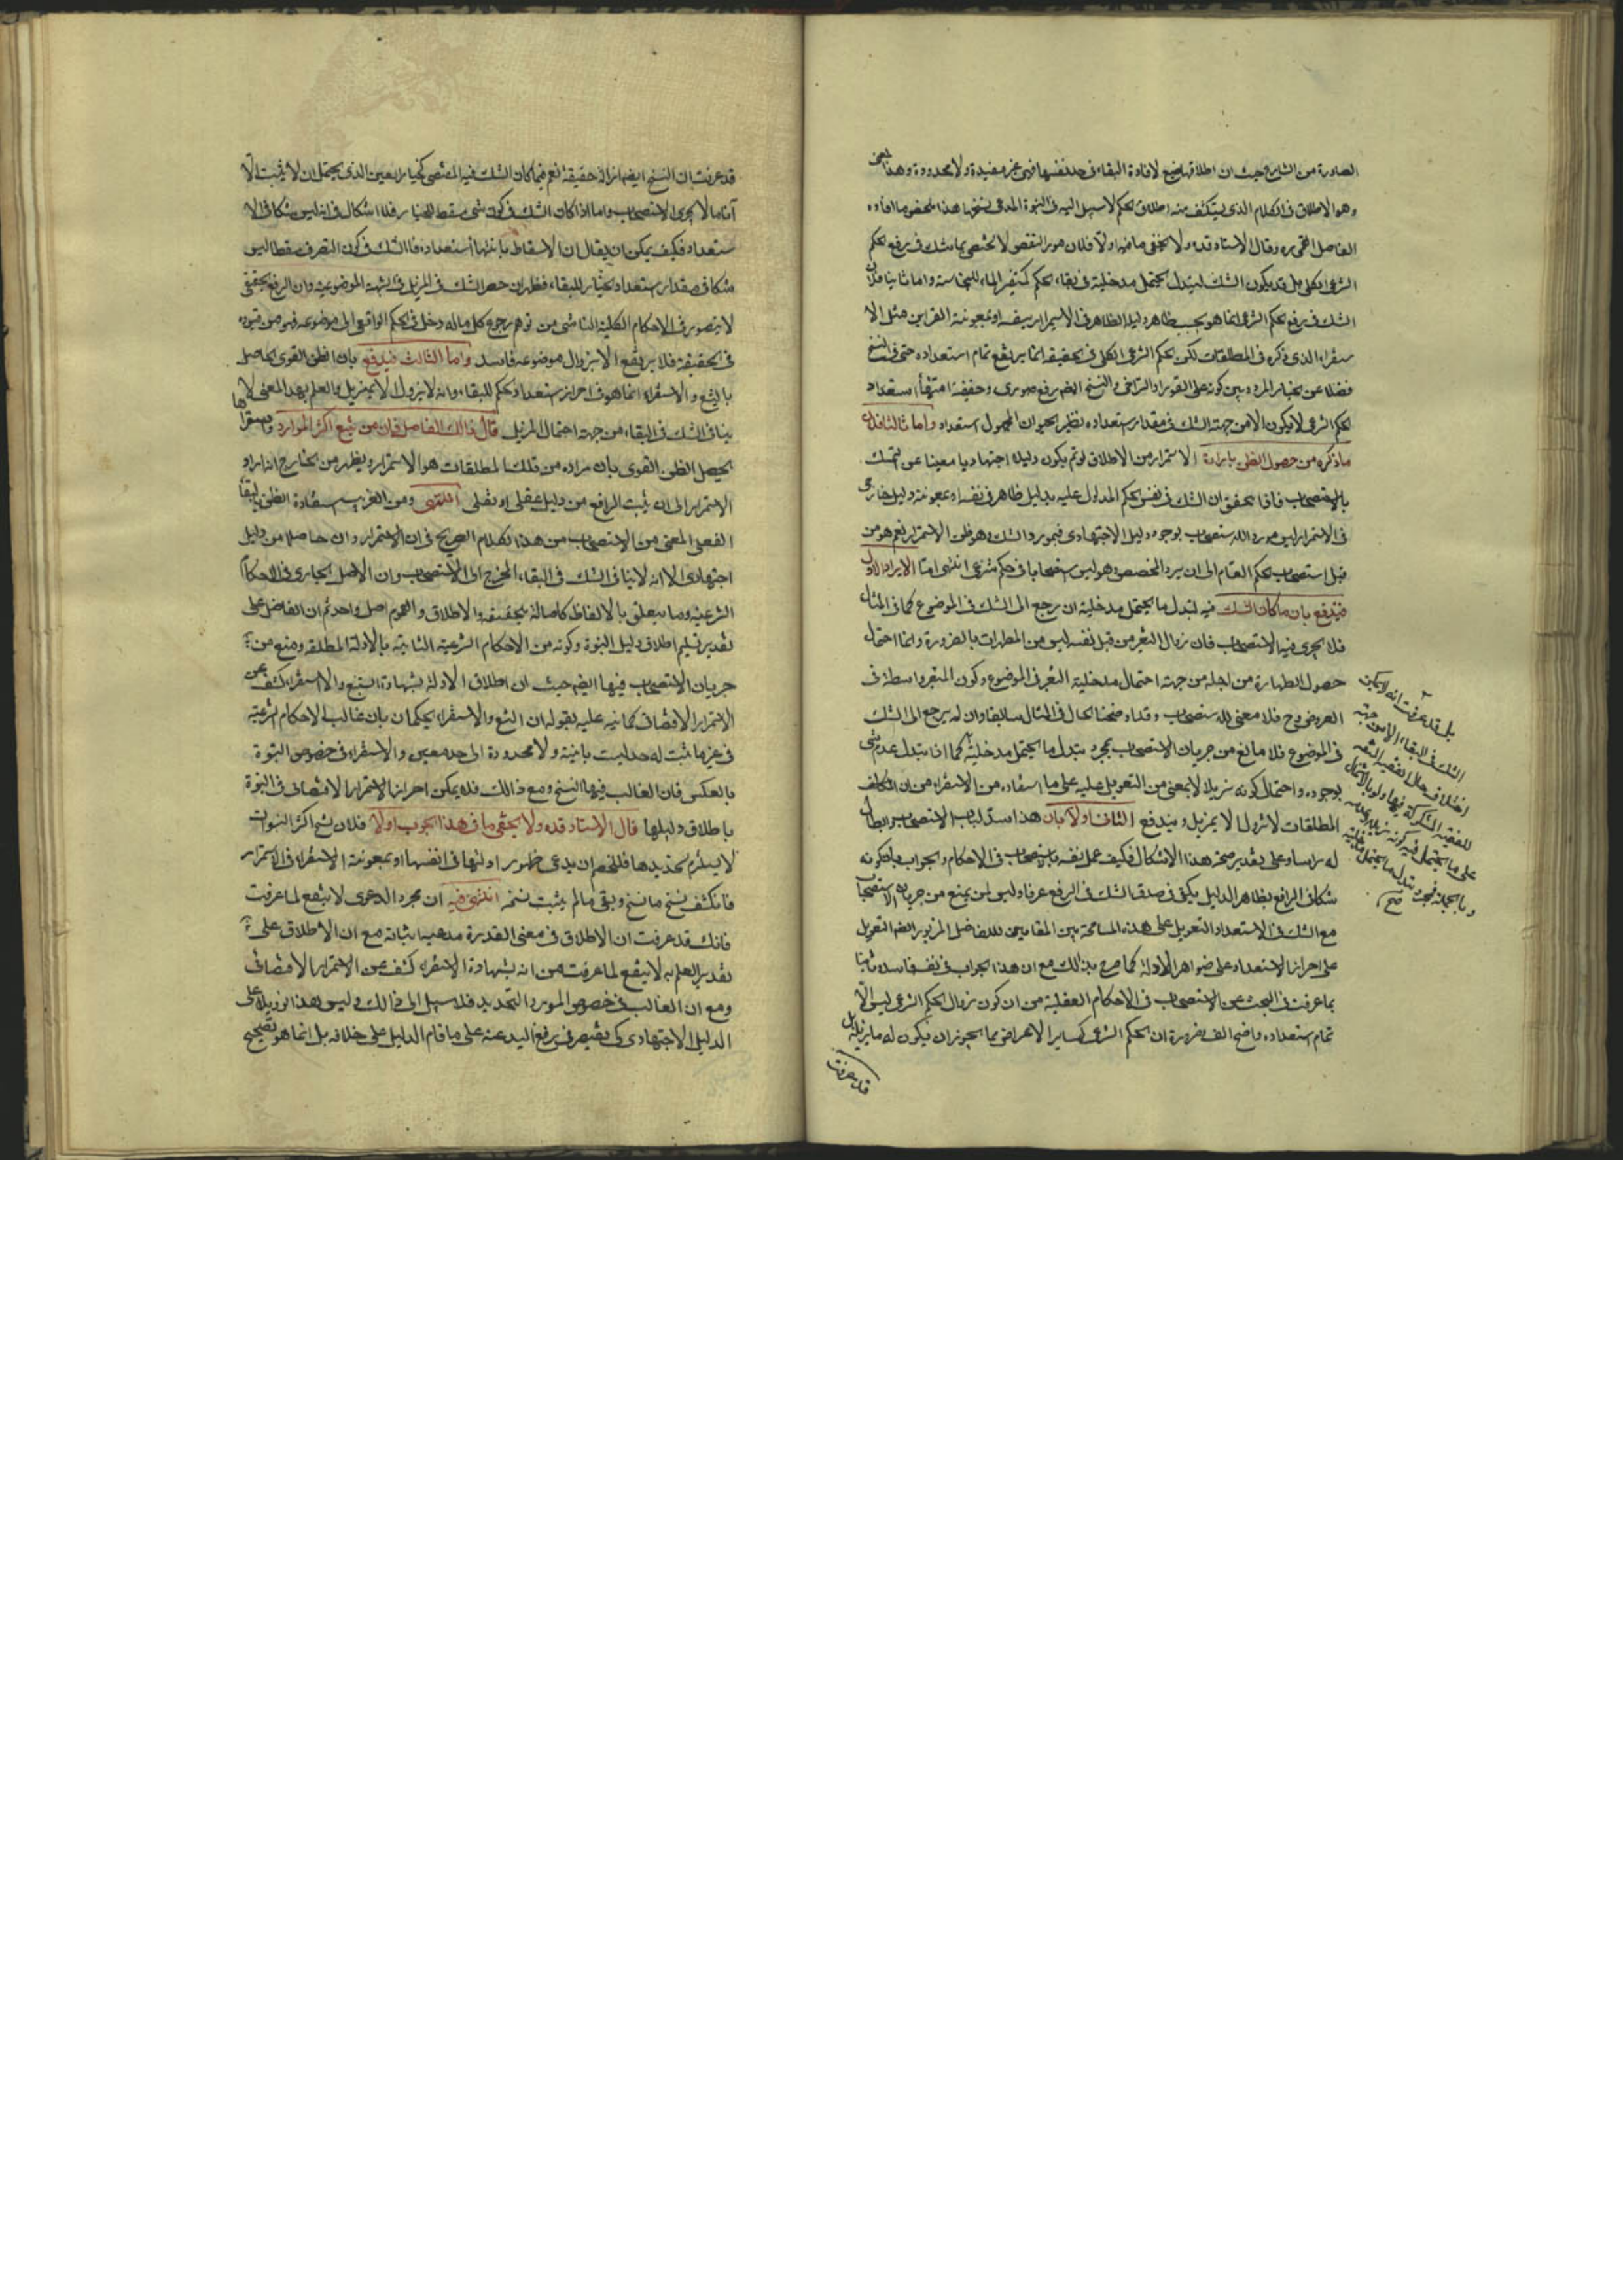 الصادرة من الشارع حيث ان اطلاقها لافادة البقاء في حد نفسها فهي غير مفيدة ولا محدودة وهذا
وهو الاطلاق في الكلام الذي يتكشف منه اطلاق الحكم لا سبيل اليه في النبوة المدعى نسخها هذا ملخص ما افاده
الفاضل القمي ره وقال الاستاد قده ولا يخفى ما فيه اولا فلان مورد النقض لا يختص بما شك في رفع الحكم
الشرعي الكلي بل قد يكون الشك لتبدل ما يحتمل مدخلية في بقاء الحكم كتغير الماء للنجاسة واما ثانيا فلان
الشك في رفع الحكم الشرعي انما هو بحسب ظاهر دليله الظاهر في الاستمرار بنفسه او بمعونة القراين مثل الا
ستقراء الذي ذكره في المطلقات لكن الحكم الشرعي الكلي في الحقيقة انما يرتفع تمام استعداده حتى في النسخ
فضلا عن الخيار المردد بين كونه على الفور او التراخي والنسخ ايضا رفع صوري وحقيقة انتهاء استعداد
الحكم الشرعي لا يكون الا من جهة الشك في مقدار استعداده نظير الحيوان المجهول استعداده واما ثالثا فلان
ما ذكره من حصول الظن بارادة الاستمرار من الاطلاق لو تم يكون دليلا اجتهاديا مغنيا عن التمسك
بالاستصحاب فاذا تحقق ان الشك في نفس الحكم المدلول عليه بدليل ظاهر في نفسه او بمعونة دليل خارجي
في الاستمرار ليس موردا للاستصحاب لوجود الدليل الاجتهادي في مورد الشك وهو ظن الاستمرار نعم هو من
قبل استصحاب حكم العام الى ان يرد المخصص وهو ليس استصحابا في حكم شرعي انتهى اما الايراد الاول
فيندفع بان ما كان الشك فيه لتبدل ما يحتمل مدخلية ان رجع الى الشك في الموضوع كما في المثال
فلا يجري فيه الاستصحاب فان زوال التغير من قبل نفسه ليس من المطهرات بالضرورة وانما احتمل
حصول الطهارة من اجله من جهة احتمال مدخلية التغير في الموضوع وكون المتغير واسطة في
العروض وح فلا معنى للاستصحاب وقد اوضحنا الحال في المثال سابقا وان لم يرجع الى الشك
في الموضوع فلا مانع من جريان الاستصحاب بمجرد تبدل ما يحتمل مدخليته كما اذا تبدل عدم شي
بوجوده واحتمال كونه مزيلا لا يمنع من التعويل عليه على ما استفاده من الاستقراء من ان التكاليف
المطلقات لا تزول الا بمزيل ويندفع الثاني اولا بان هذا سد لباب الاستصحاب وابطال
له راسا وعلى تقدير صحة هذا الاشكال فكيف عمل نفسه بالاستصحاب في الاحكام والجواب بان كونه
شكا في الرافع بظاهر الدليل يكفي في صدق الشك في الرفع عرفا وليس لمن يمنع من جريان الاستصحاب
مع الشك في الاستعداد التعويل على هذه المسامحة بين المقامين للفاضل المزبور ايضا التعويل
على احراز الاستعداد على ظواهر الادلة كما صرح بذلك مع ان هذا الجواب في نفسه فاسد وثانيا
بما عرفت في البحث عن الاستصحاب في الاحكام العقلية من ان كون زوال الحكم الشرعي ليس الا
تمام استعداده واضح الفساد ضرورة ان الحكم الشرعي كسائر الاعراض مما يجوز ان يكون له ما يزيله بل
قد عرفت
بل قد عرفت انه لا يمكن
الشك في البقاء الا من جهة
وبالجملة فمجرد تبدل ما يحتمل مدخليته
صح
قد عرفت ان النسخ ايضا ازالة حقيقة نعم فيما كان الشك فيه المقتضي كخيار الغبن الذي يحتمل ان لا يثبت الا
آناما لا يجري الاستصحاب واما اذا كان الشك في كون شي مسقط للخيار فلا اشكال في انه ليس شكا في الا
ستعداد فكيف يمكن ان يقال ان الاسقاط بانتهاء استعداده فالشك في كون التصرف مسقطا ليس
شكا في مقدار استعداد الخيار للبقاء فظهر ان حصر الشك في المزيل في الشبهة الموضوعية وان الرفع الحقيقي
لا يتصور في الاحكام الكلية الناشي من توهم رجوع كل ما له دخل في الحكم الواقعي الى موضوعه فهو من قيوده
في الحقيقة فلا يرتفع الا بزوال موضوعه فاسد واما الثالث فيدفع بان الظن القوي الحاصل
بالتتبع والاستقراء انما هو في احراز استعداد الحكم للبقاء وانه لا يزول الا بمزيل والعلم بهذا المعنى لا
ينافي الشك في البقاء من جهة احتمال المزيل قال ذالك الفاضل فان من تتبع اكثر الموارد واستقرائها
يحصل الظن القوي بان مراده من تلك المطلقات هو الاستمرار ويظهر من الخارج انه اراد
الاستمرار الى ان يثبت الرافع من دليل عقلي او نقلي انتهى ومن الغريب استفادة الظن بالبقاء
الفعلي المغني عن الاستصحاب من هذا الكلام الصريح في ان الاستمرار وان حاصلا من دليل
اجتهادي الا انه لا ينافي الشك في البقاء المحوج الى الاستصحاب وان الاصل الجاري في الاحكام
الشرعية وما يتعلق بالالفاظ كاصالة الحقيقة والاطلاق والعموم اصل واحد ثم ان الفاضل على
تقدير تسليم اطلاق دليل النبوة وكونه من الاحكام الشرعية الثابتة بالادلة المطلقة ومنع من
جريان الاستصحاب فيها ايضا حيث ان اطلاق الادلة بشهادة التتبع والاستقراء كشف عن
الاستمرار الاقتضائي كما نبه عليه بقوله ان التتبع والاستقراء يحكمان بان غالب الاحكام الشرعية
في غير ما ثبت له حد ليست بآنية ولا محدودة الى حد معين والاستقراء في خصوص النبوة
بالعكس فان الغالب فيها النسخ ومع ذالك فلا يمكن احراز الاستمرار الاقتضائي في النبوة
باطلاق دليلها قال الاستاد قده ولا يخفى ما في هذا الجواب اولا فلان نسخ اكثر النبوات
لا يستلزم تحديدها فللخصم ان يدعي ظهور ادلتها في انفسها او بمعونة الاستقراء في الاستمرار
فانكشف نسخ ما نسخ وبقي ما لم يثبت نسخه انتهى فيه ان مجرد الدعوى لا ينفع لما عرفت
فانك قد عرفت ان الاطلاق في معنى القدرة مدعيه اثباته مع ان الاطلاق على
تقدير العلم به لا ينفع لما عرفت من انه بشهادة الاستقراء كشف عن الاستمرار الاقتضائي
ومع ان الغالب في خصوص المورد التحديد فلا سبيل الى ذالك وليس هذا على
الدليل الاجتهادي كي يقتصر في رفع اليد عنه على ما قام الدليل على خلافه بل انما هو تصحيح